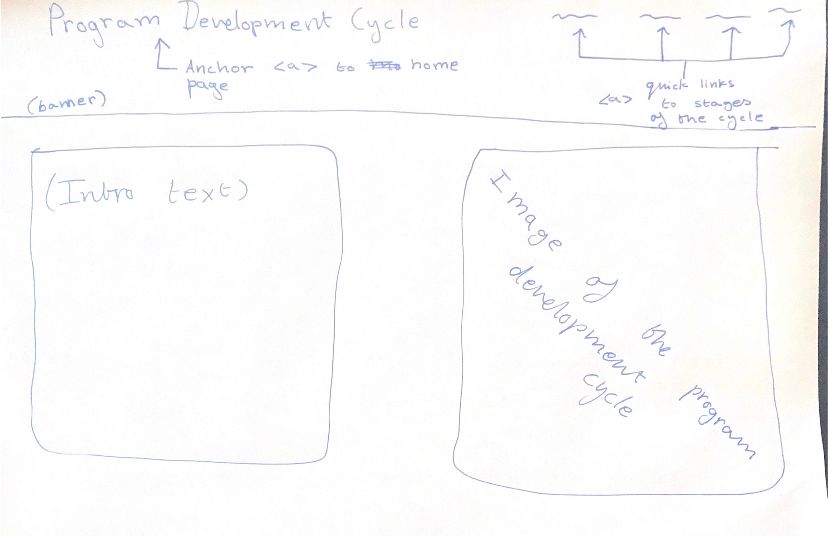 Program Development Cycle
Anchor <a> to home
page
quick links
<a> to stages
of the cycle
(banner)
(Intro text)
Image of the program
development
cycle